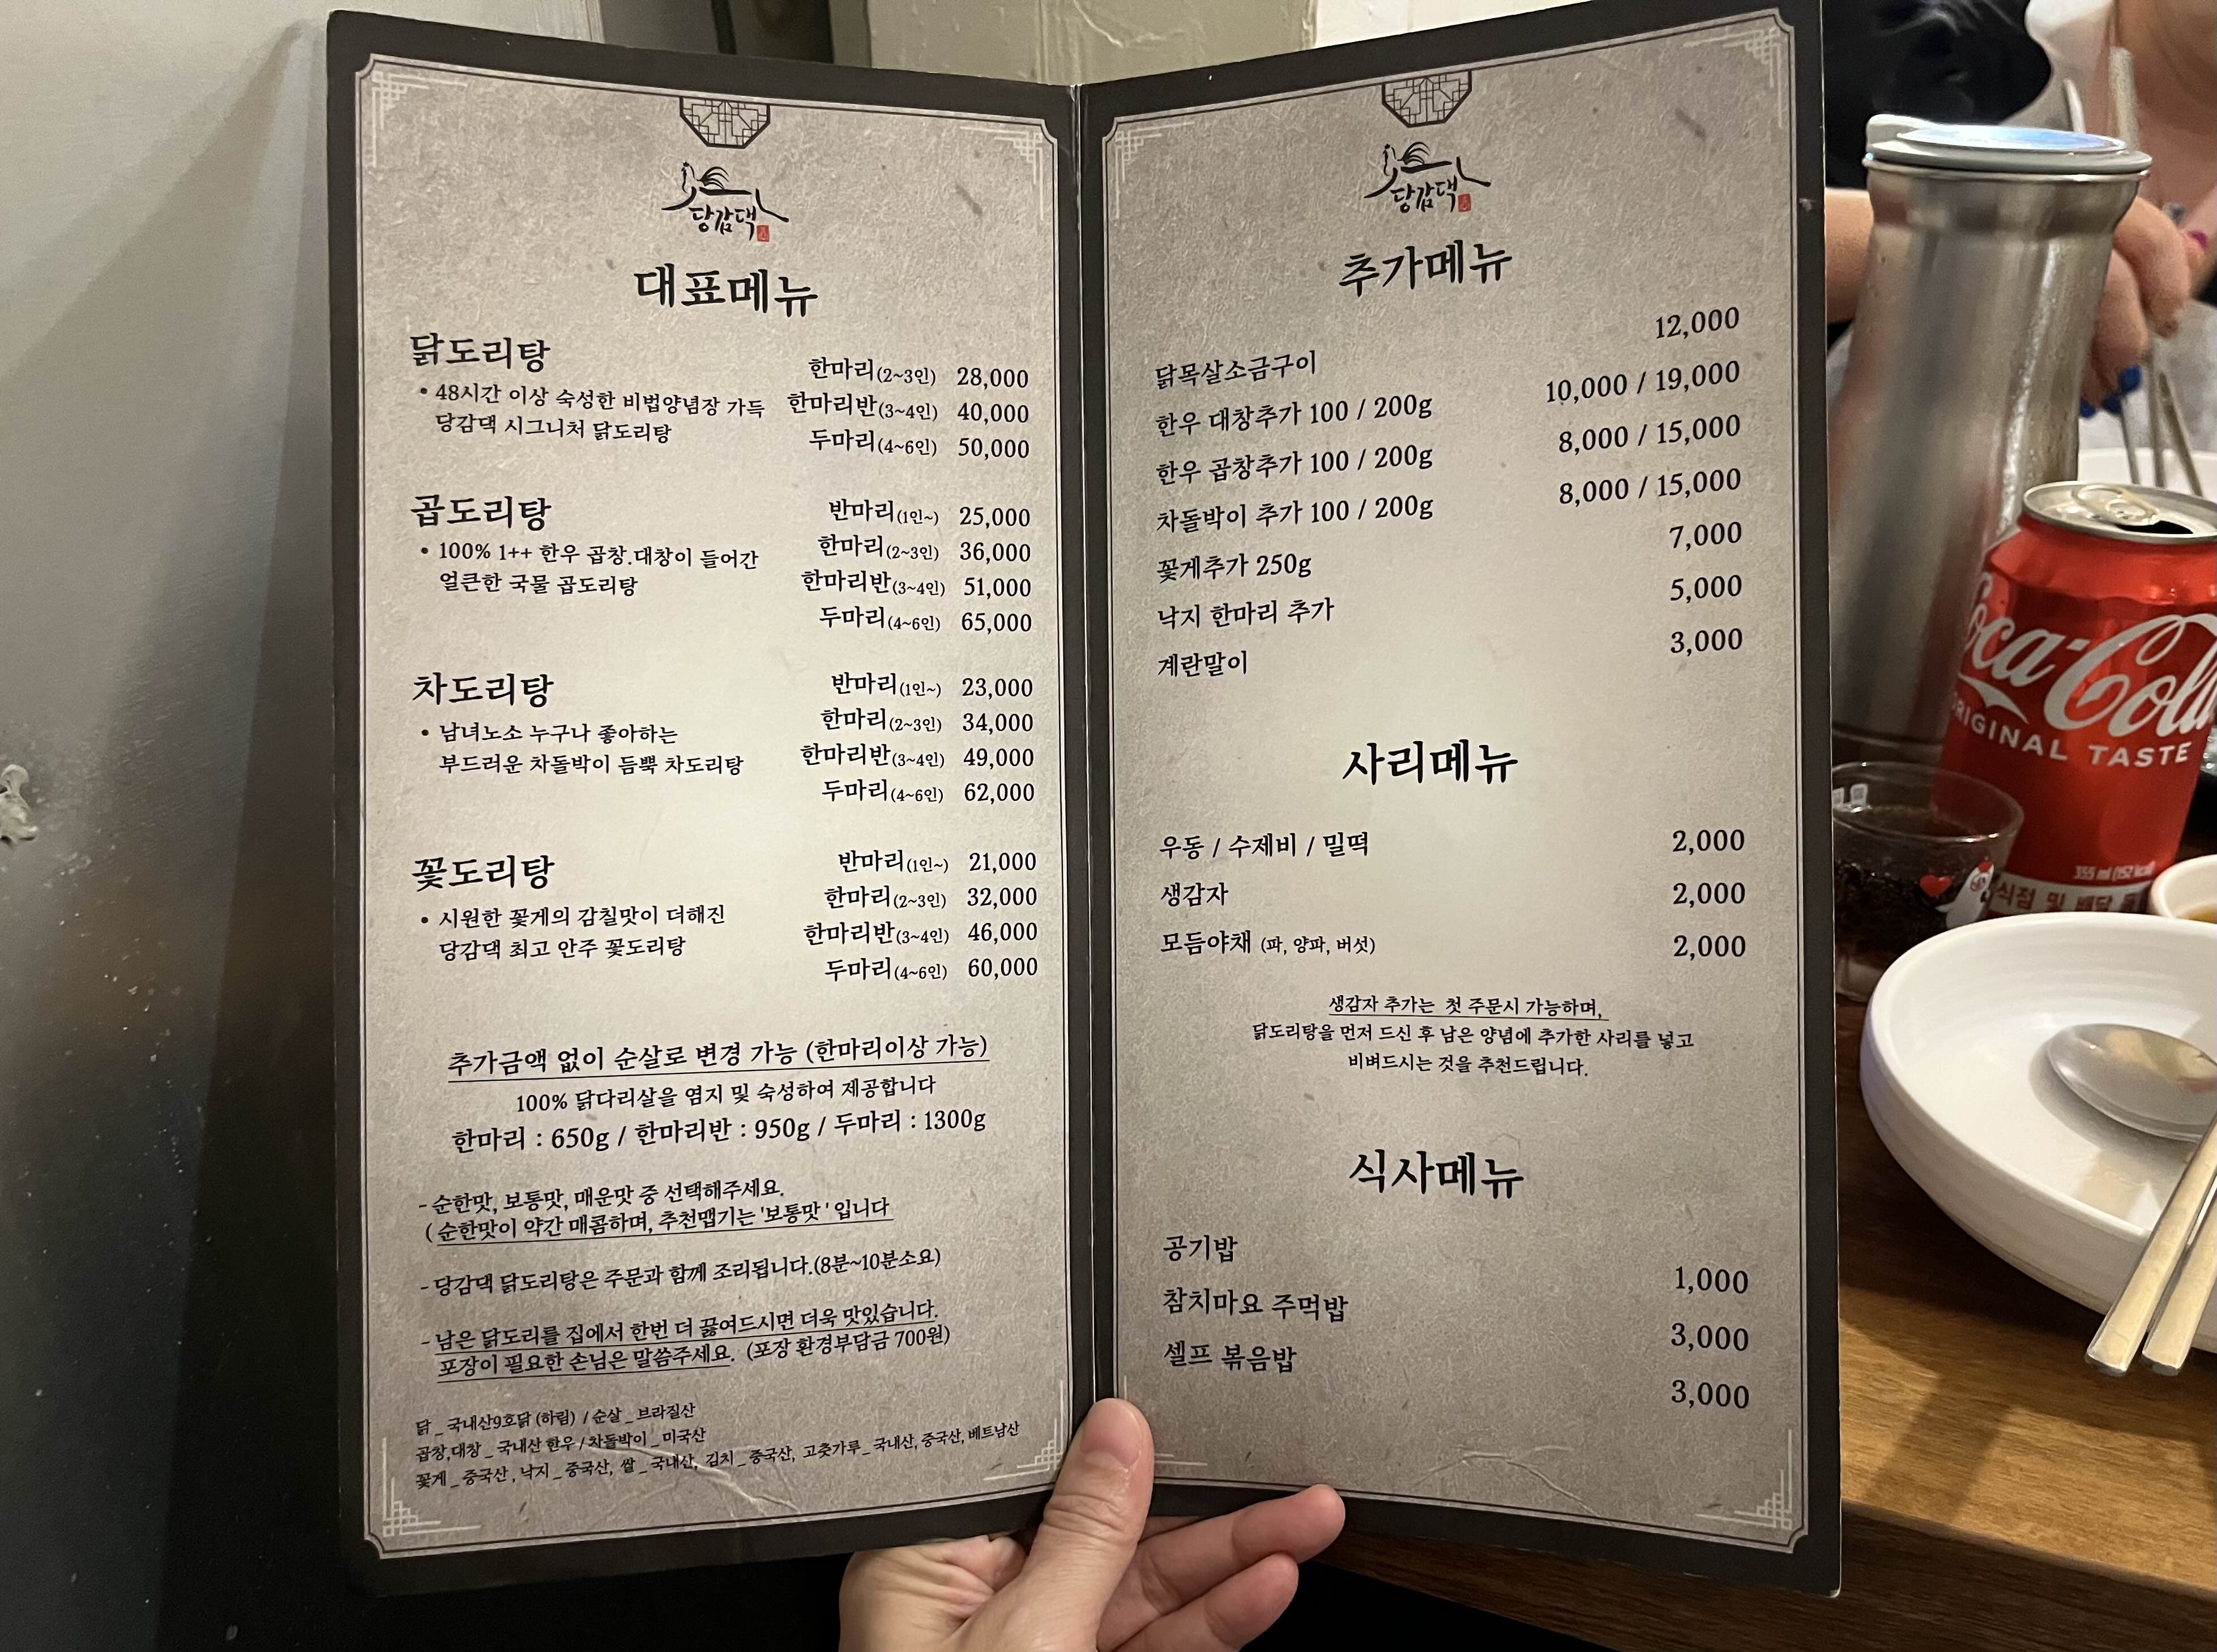 당감댁
대표메뉴
닭도리탕
• 48시간 이상 숙성한 비법양념장 가득
당감댁 시그니처 닭도리탕
한마리(2~3인) 28,000
한마리반(3~4인) 40,000
두마리(4~6인) 50,000
곱도리탕
• 100% 1++ 한우 곱창.대창이 들어간
얼큰한 국물 곱도리탕
반마리(1인~) 25,000
한마리(2~3인) 36,000
한마리반(3~4인) 51,000
두마리(4~6인) 65,000
차도리탕
• 남녀노소 누구나 좋아하는
부드러운 차돌박이 듬뿍 차도리탕
반마리(1인~) 23,000
한마리(2~3인) 34,000
한마리반(3~4인) 49,000
두마리(4~6인) 62,000
꽃도리탕
• 시원한 꽃게의 감칠맛이 더해진
당감댁 최고 안주 꽃도리탕
반마리(1인~) 21,000
한마리(2~3인) 32,000
한마리반(3~4인) 46,000
두마리(4~6인) 60,000
추가금액 없이 순살로 변경 가능 (한마리이상 가능)
100% 닭다리살을 염지 및 숙성하여 제공합니다
한마리 : 650g / 한마리반 : 950g / 두마리 : 1300g
- 순한맛, 보통맛, 매운맛 중 선택해주세요.
( 순한맛이 약간 매콤하며, 추천맵기는 '보통맛 ' 입니다
- 당감댁 닭도리탕은 주문과 함께 조리됩니다.(8분~10분소요)
- 남은 닭도리를 집에서 한번 더 끓여드시면 더욱 맛있습니다.
포장이 필요한 손님은 말씀주세요. (포장 환경부담금 700원)
닭 _ 국내산9호닭 (하림) / 순살 _ 브라질산
곱창,대창 _ 국내산 한우 / 차돌박이 _ 미국산
꽃게 _ 중국산 , 낙지 _ 중국산, 쌀 _ 국내산, 김치 _ 중국산, 고춧가루 _ 국내산, 중국산, 베트남산
당감댁
추가메뉴
닭목살소금구이 12,000
한우 대창추가 100 / 200g 10,000 / 19,000
한우 곱창추가 100 / 200g 8,000 / 15,000
차돌박이 추가 100 / 200g 8,000 / 15,000
꽃게추가 250g 7,000
낙지 한마리 추가 5,000
계란말이 3,000
사리메뉴
우동 / 수제비 / 밀떡 2,000
생감자 2,000
모듬야채 (파, 양파, 버섯) 2,000
생감자 추가는 첫 주문시 가능하며,
닭도리탕을 먼저 드신 후 남은 양념에 추가한 사리를 넣고
비벼드시는 것을 추천드립니다.
식사메뉴
공기밥 1,000
참치마요 주먹밥 3,000
셀프 볶음밥 3,000
Coca-Cola
ORIGINAL TASTE
355 ml
식점 및 배달